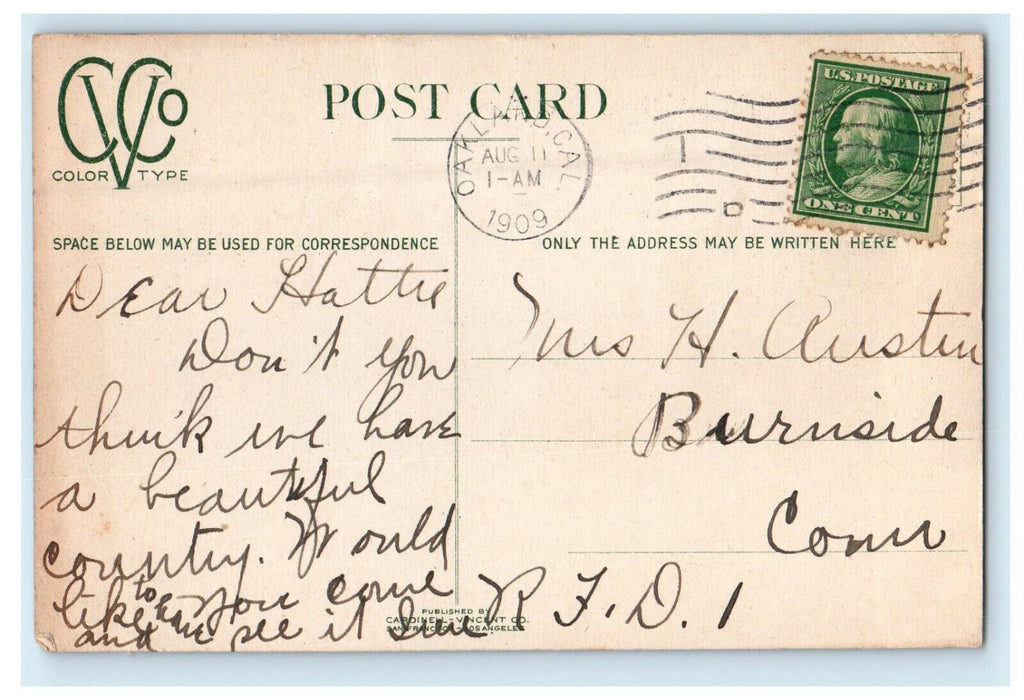 CVCo
COLOR TYPE
POST CARD
OAKLAND, CAL.
AUG 11
1-AM
1909
U.S. POSTAGE
ONE CENT
SPACE BELOW MAY BE USED FOR CORRESPONDENCE
ONLY THE ADDRESS MAY BE WRITTEN HERE
Dear Hattie
Don't you
think we have
a beautiful
country. Would
like to have you come
and see it
PUBLISHED BY
CARDINELL-VINCENT CO.
SAN FRANCISCO - LOS ANGELES
Mrs H. Austin
Burnside
Conn
R. F. D. 1